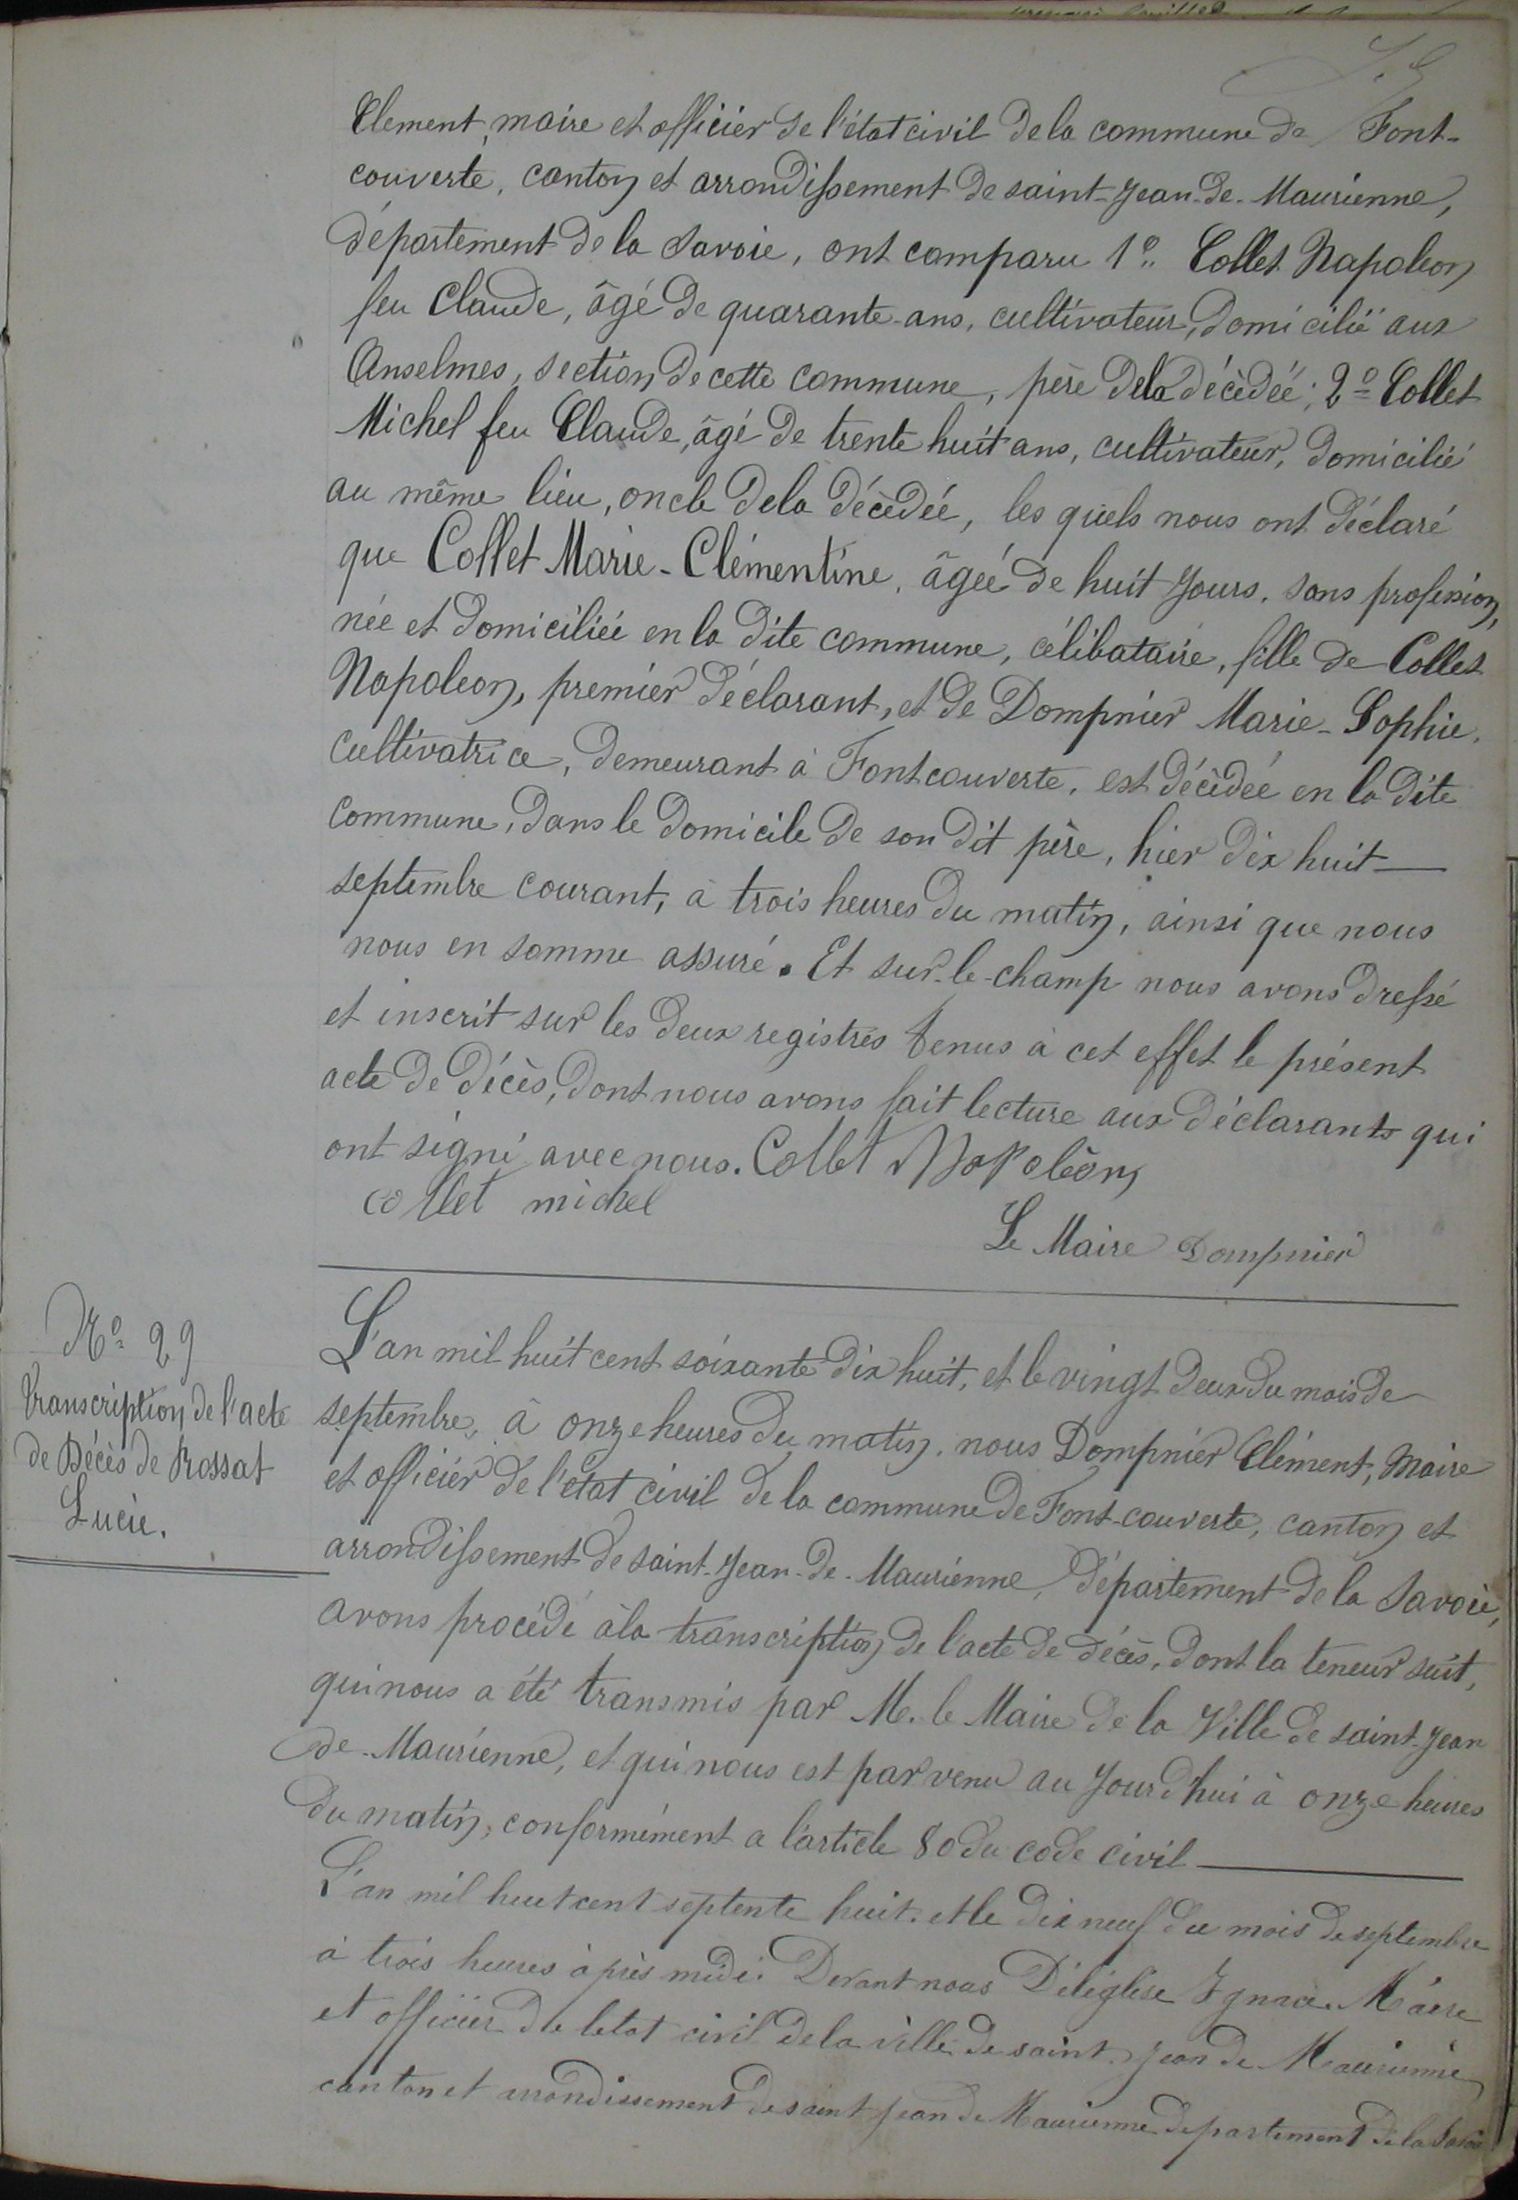 Clement, maire et officier de l'état civil de la commune de Font-
couverte, canton et arrondissement de saint-Jean-de-Maurienne,
département de la Savoie, ont comparu 1° Collet Napoleon
feu Claude, âgé de quarante-ans, cultivateur, domicilié aux
Anselmes, section de cette commune, père de la décédée; 2° Collet
Michel feu Claude, âgé de trente huit ans, cultivateur, domicilié
au même lieu, oncle de la décédée, les quels nous ont déclaré
que Collet Marie-Clémentine, âgée de huit Jours, sans profession,
née et domiciliée en la dite commune, célibataire, fille de Collet
Napoleon, premier déclarant, et de Dompnier Marie-Sophie,
cultivatrice, demeurant à Fontcouverte, est décédée en la dite
commune, dans le domicile de son dit père, hier dix huit
septembre courant, à trois heures du matin, ainsi que nous
nous en somme assuré. Et sur-le-champ nous avons dressé
et inscrit sur les deux registres tenus à cet effet le présent
acte de décès, dont nous avons fait lecture aux déclarants qui
ont signé avec nous. Collet Napoléon
collet michel
Le Maire Dompnier
N° 29
transcription de l'acte
de Décès de Rossat
Lucie.
L'an mil huit cent soixante dix huit, et le vingt deux du mois de
septembre, à onze heures du matin, nous Dompnier Clément, Maire
et officier de l'état civil de la commune de Font-couverte, canton et
arrondissement de saint-Jean-de-Maurienne, département de la Savoie,
avons procédé à la transcription de l'acte de décès, dont la teneur suit,
qui nous a été transmis par M. le Maire de la Ville de saint-Jean
de-Maurienne, et qui nous est parvenu au Jourd'hui à onze heures
du matin, conformément a l'article 80 du code civil
L'an mil huit cent septente huit. et le dix neuf du mois de septembre
à trois heures après midi. Devant nous Déléglise Ignace Maire
et officier de letat civil de la ville de saint Jean de Maurienne
canton et arrondissement de saint Jean de Maurienne departement de la Savoie